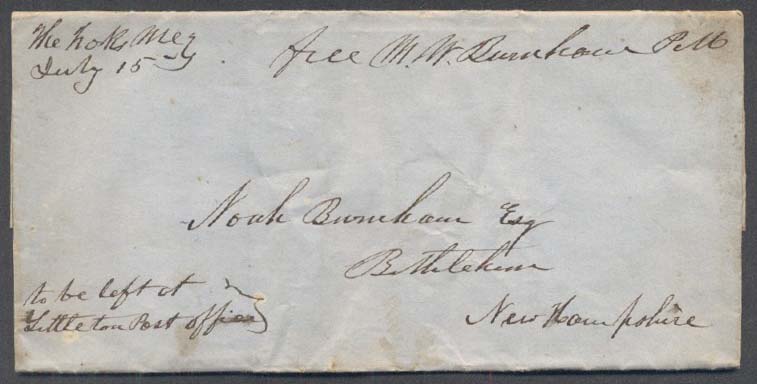 The Forks Me
July 15
free M. W. Burnham P.M
Noah Burnham Esq
Bethlehem
New Hampshire
to be left at
Littleton Post office